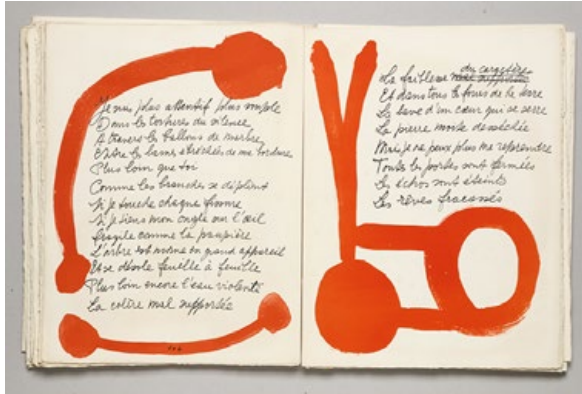 Je suis plus attentif plus souple
Dans les tortures du silence
A travers les ballons de marbre
Entre les lames
Plus loin que toi
Comme les branches se déplient
Si je touche chaque
Si je tiens mon ongle sur l'œil
fragile comme la paupière
L'arbre est même un grand appareil
Et se désole feuille à feuille
Plus loin encore l'eau violente
La colère mal supportée
La faiblesse du caractère
Et dans tous les fours de la terre
La lave d'un cœur qui se serre
La pierre morte desséchée
Mais je ne peux plus me reprendre
Toutes les portes sont fermées
Les échos sont éteints
Les rêves fracassés